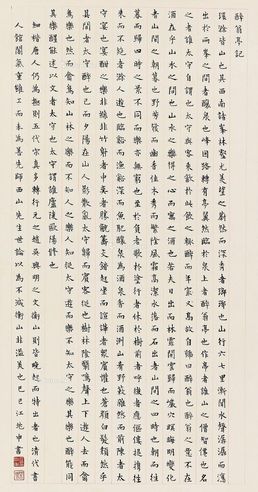 醉翁亭記
環滁皆山也其西南諸峰林壑尤美望之蔚然而深秀者瑯琊也山行六七里漸聞水聲潺潺而瀉
出於兩峯之間者釀泉也峰回路轉有亭翼然臨於泉上者醉翁亭也作亭者誰山之僧智僊也名
之者誰太守自謂也太守與客來飲於此飲少輒醉而年又最高故自號曰醉翁也醉翁之意不在
酒在乎山水之間也山水之樂得之心而寓之酒也若夫日出而林霏開雲歸而巖穴暝晦明變化
者山間之朝暮也野芳發而幽香佳木秀而繁陰風霜高潔水落而石出者山間之四時也朝而往
暮而歸四時之景不同而樂亦無窮也至於負者歌於塗行者休於樹前者呼後者應傴僂提攜往
來而不絕者滁人遊也臨谿而漁谿深而魚肥釀泉為酒泉香而酒洌山肴野蔌雜然而前陳者太
守宴也宴酣之樂非絲非竹射者中弈者勝觥籌交錯起坐而諠譁者衆賓懽也蒼顏白髮頹然乎
其間者太守醉也已而夕陽在山人影散亂太守歸而賓客從也樹林陰翳鳴聲上下遊人去而禽
鳥樂也然而禽鳥知山林之樂而不知人之樂人知從太守遊而樂不知太守之樂其樂也醉能同
其樂醒能述以文者太守也太守謂誰廬陵歐陽修也
楷唐人仍為極則五代宗多轉行元之趙吳興明之文衡山則皆晚起而特出者也清代書
人館閣氣重雖工而未為美先師西山先生世論以為不減衡山非溢美也己巳江地申書